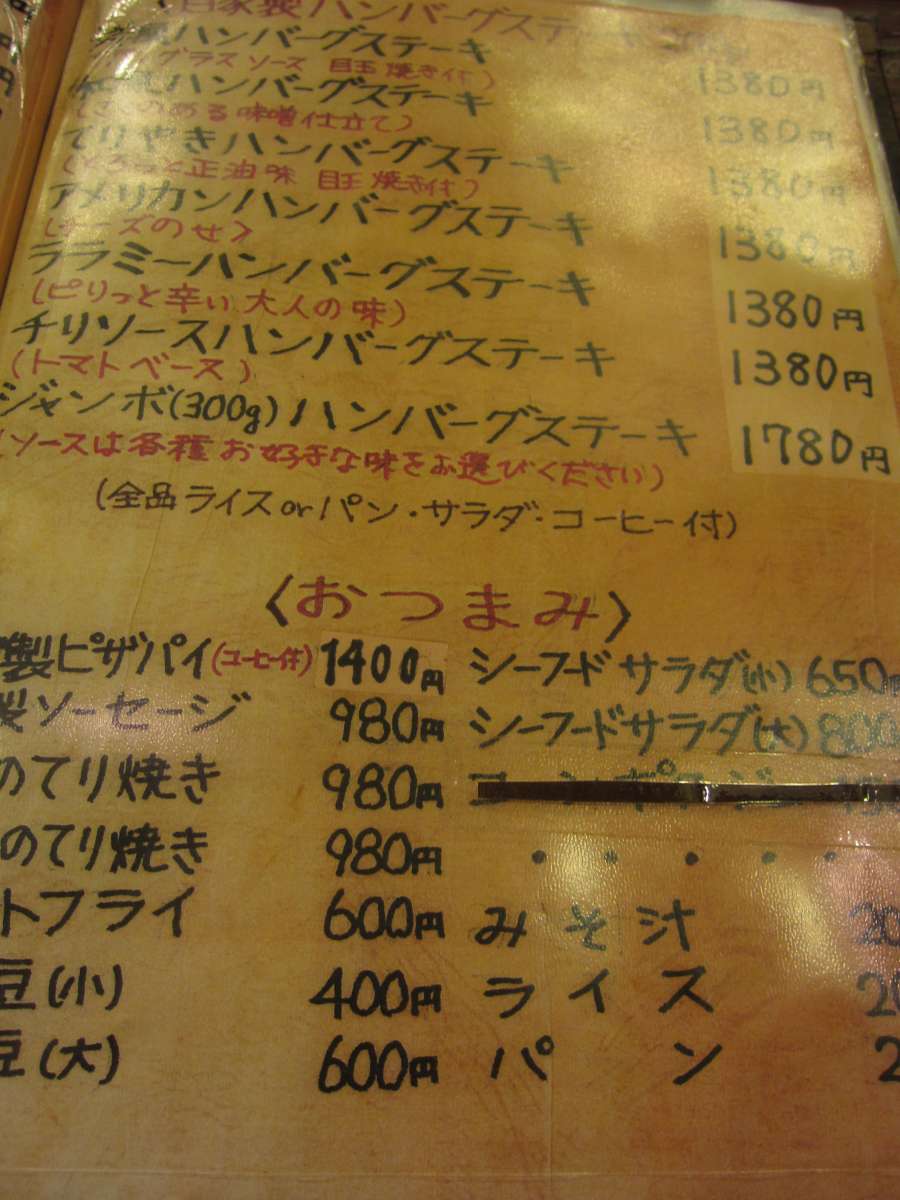 自家製ハンバーグステーキ
ハンバーグステーキ 1380円
グラスソース 目玉焼き付)
ハンバーグステーキ 1380円
ある味噌仕立て)
てりやきハンバーグステーキ 1380円
正油味 目玉焼き付)
アメリカンハンバーグステーキ 1380円
(チーズのせ)
ララミーハンバーグステーキ 1380円
(ピリっと辛い大人の味)
チリソースハンバーグステーキ 1380円
(トマトベース)
ジャンボ(300g)ハンバーグステーキ 1780円
(ソースは各種お好きな味をお選びください)
(全品ライスorパン・サラダ・コーヒー付)
〈おつまみ〉
製ピザパイ(コーヒー付) 1400円 シーフードサラダ(小) 650円
製ソーセージ 980円 シーフードサラダ(大) 800
のてり焼き 980円
のてり焼き 980円 ・・・・・
トフライ 600円 みそ汁 20
豆(小) 400円 ライス 20
豆(大) 600円 パン 2